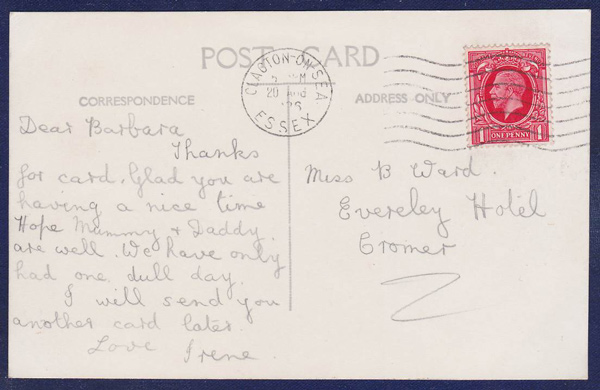 POST CARD
CLACTON-ON-SEA
20 AUG
ESSEX
CORRESPONDENCE
ADDRESS ONLY
ONE PENNY
Dear Barbara
Thanks
for card. Glad you are
having a nice time
Hope Mummy & Daddy
are well. We have only
had one dull day.
I will send you
another card later.
Love Irene.
Miss B Ward.
Evereley Hotel
Cromer